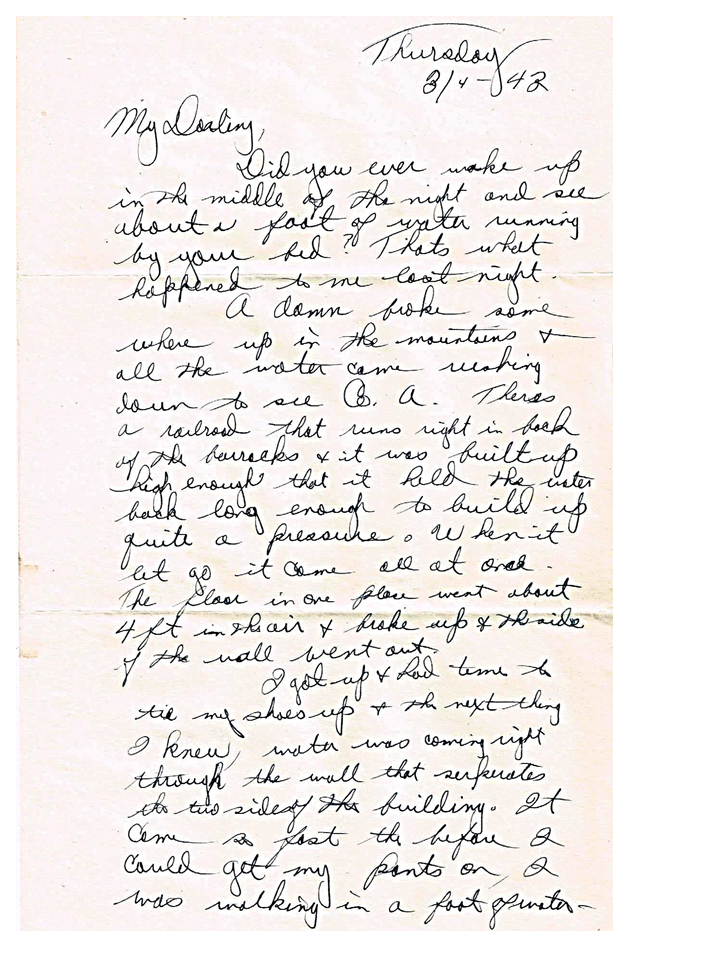 Thursday
3/4-43
My Darling,
Did you ever wake up
in the middle of the night and see
about a foot of water running
by your bed? Thats what
happened to me last night.
A damn broke some
where up in the mountains &
all the water came rushing
down to see B. A. Theres
a railroad that runs right in back
of the barracks & it was built up
high enough that it held the water
back long enough to build up
quite a pressure. When it
let go it came all at once.
The floor in one place went about
4 ft in the air & broke up & the side
of the wall went out.
I got up & had time to
tie my shoes up & the next thing
I knew, water was coming right
through the wall that serperates
the two sides of the building. It
came so fast the before I
could get my pants on, I
was walking in a foot of water-